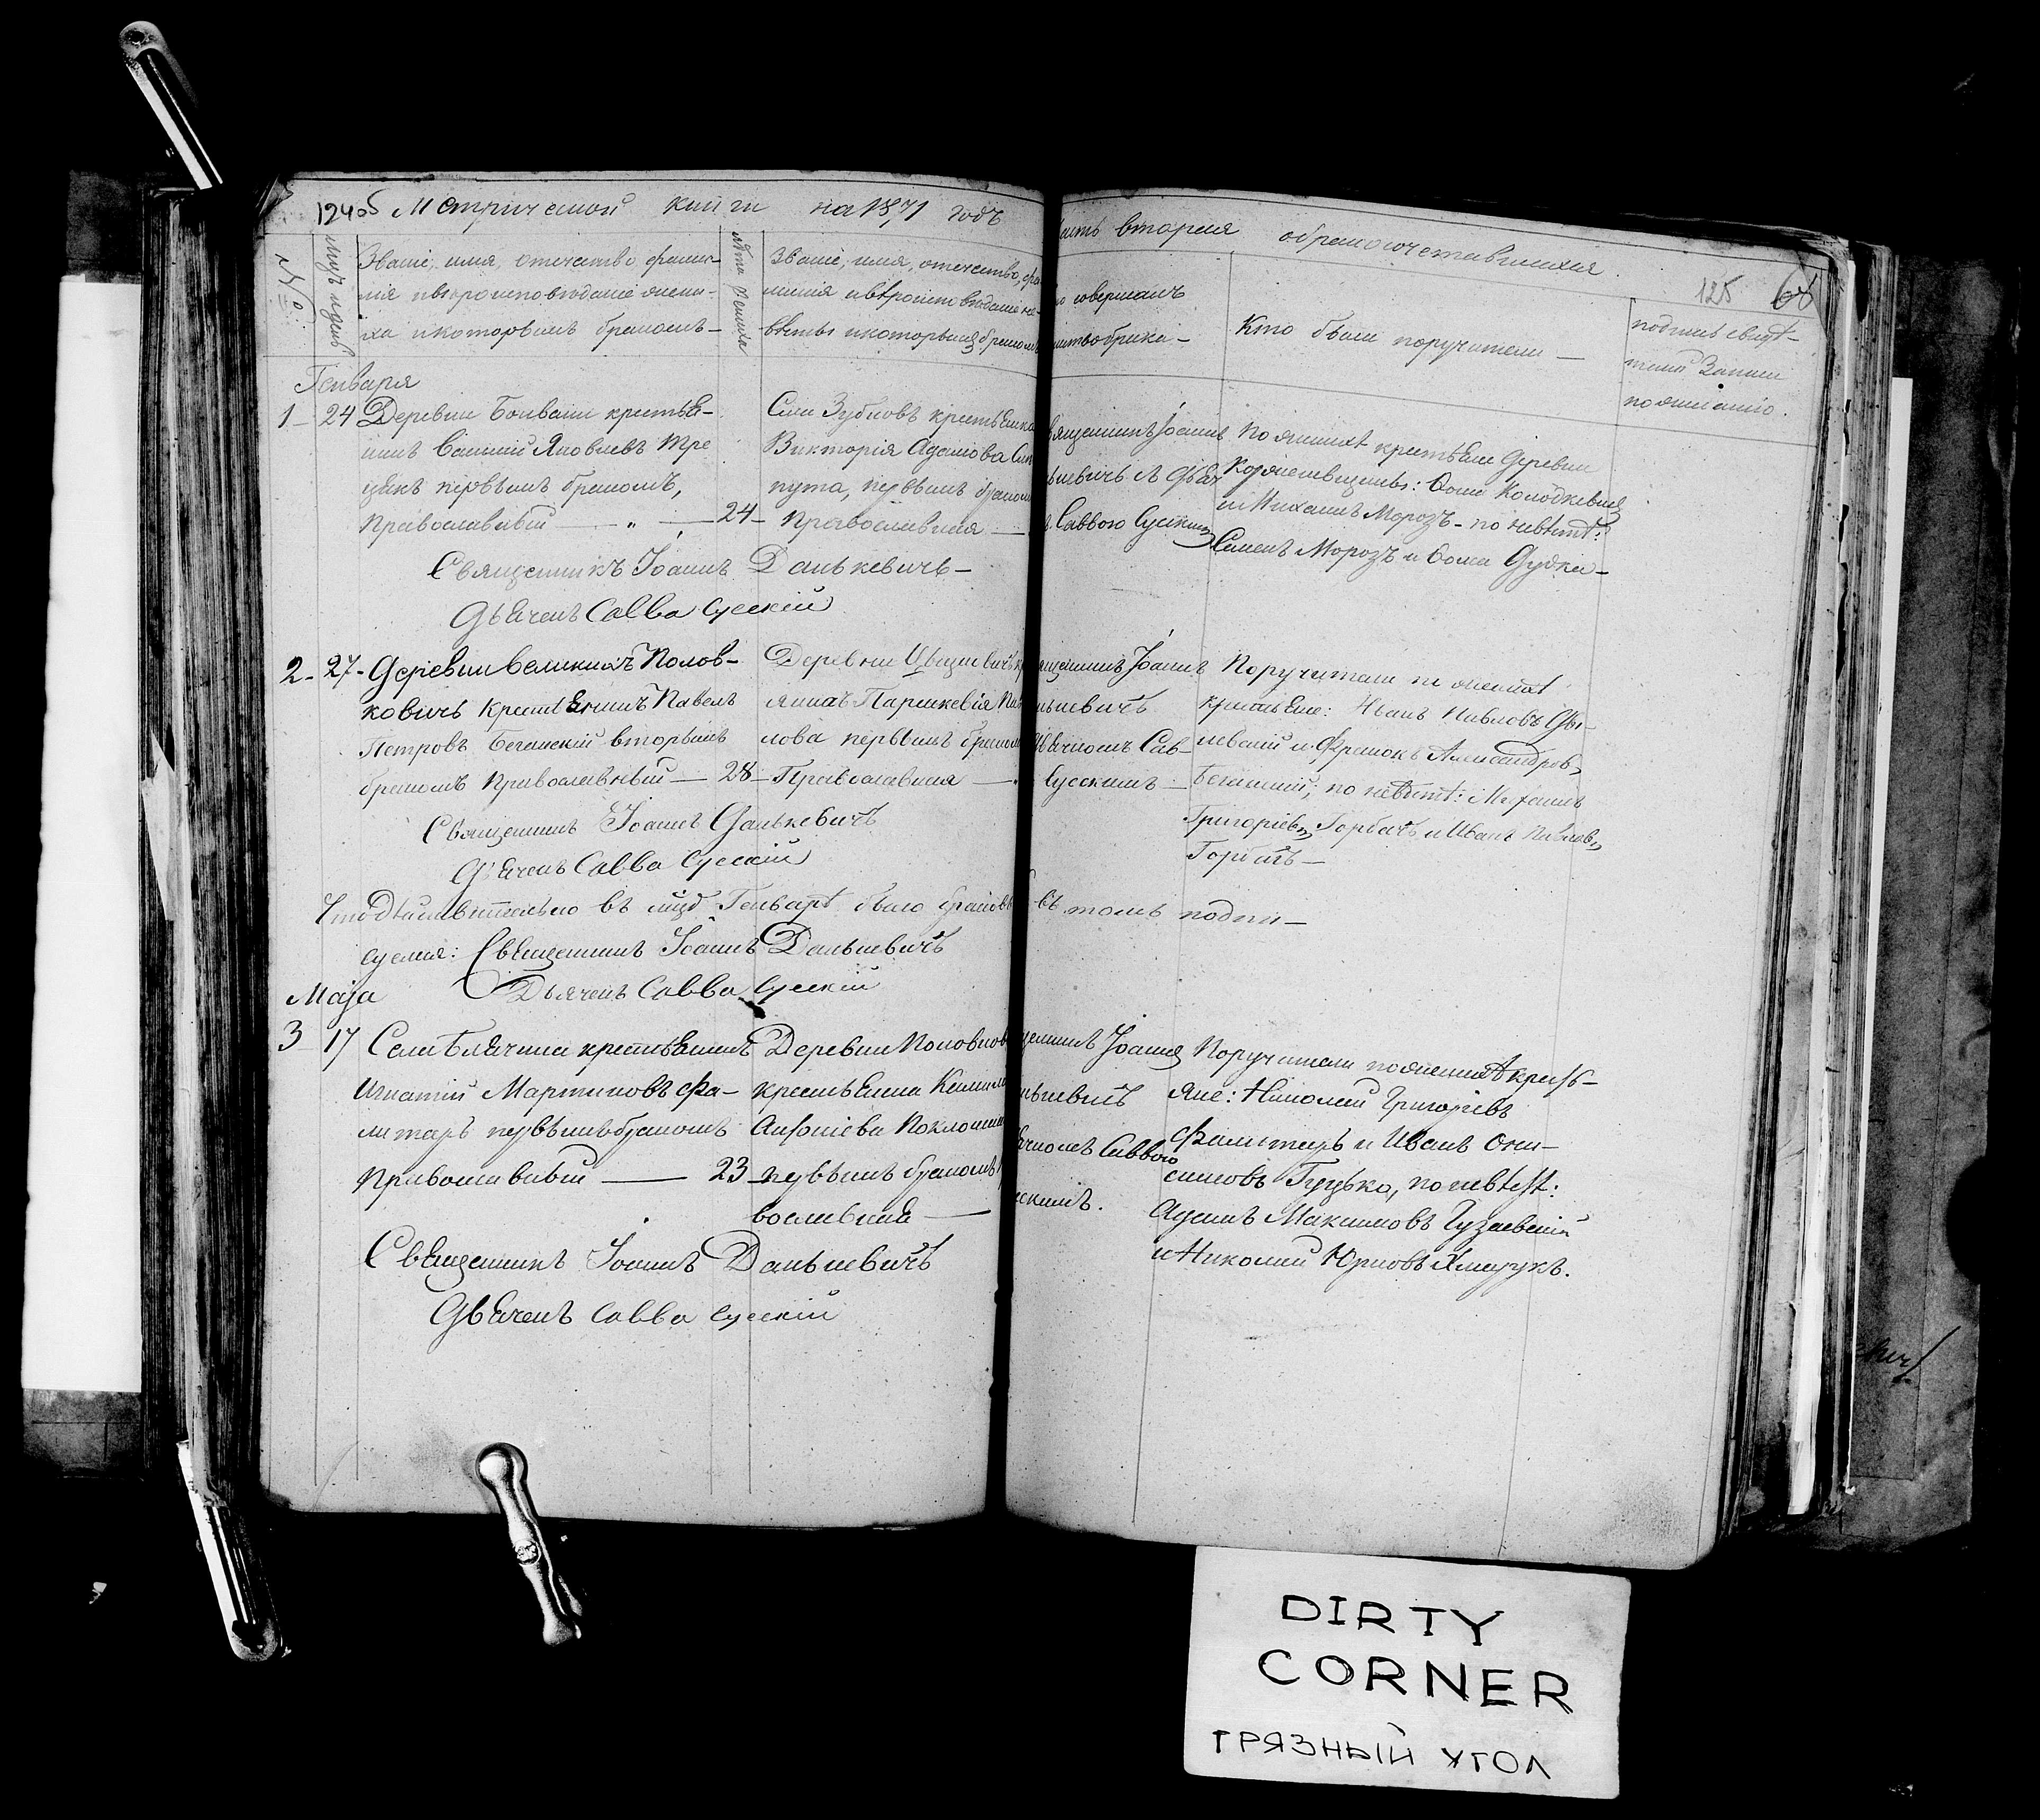 124об Метрической книги на 1871 годъ
Часть вторая о бракосочетавшихся.
125 68
№ Мѣсяцъ и день
Званіе, имя, отечество фами-
лія и вѣроисповѣданіе жени-
ха и которымъ бракомъ-
Лѣта жениха
Званіе, имя, отечество, фа
милія и вѣроисповѣданіе не-
вѣсты и которымъ бракомъ
совершалъ
Кто были поручители —
подпись свидѣ-
телей записи
по желанію.
Генваря
1 - 24 Деревни крестья-
нинъ Яковлевъ Тре
первымъ бракомъ,
Православный — „ — 24 -
Села Зубковъ крестьянка
Викторія Адамова
пута, первымъ браком
Православная —
вященникъ Іоаннъ
ькевичъ
Саввою Сусскимъ
По женихѣ крестьяне деревни
и Михаилъ Морозъ - по невѣстѣ:
Семенъ Морозъ и Ѳома Дудка -
Священникъ Іоаннъ Данькевичъ -
Дьячекъ Савва Сусскій
2 - 27 - Деревни Великихъ Полов-
ковичъ крестьянинъ Павелъ
Петровъ Беганскій вторымъ
бракомъ Православный — 28 -
Деревни
янка Параскевія
лова первымъ браком
Православная —
щенникъ Іоаннъ
ькевичъ
ьячкомъ Сав-
Сусскимъ —
Поручители по женихѣ
крестьяне: Иванъ Павловъ
и Францъ Александровъ
Беганскій; по невѣстѣ: Михаилъ
Григорьевъ Горбачъ и Иванъ Павловъ
Горбачъ —
Священникъ Іоаннъ Данькевичъ
Дьячекъ Савва Сусскій
Что дѣйствительно въ мцѣ Генварѣ было браковъ
въ томъ подпи-
суемся: Священникъ Іоаннъ Данькевичъ
Дьячекъ Савва Сусскій
Маја
3 - 17 Села Блячина крестьянинъ
Игнатій Мартиновъ Фа-
литаръ первымъ бракомъ
Православный — 23 -
Деревни Половков
крестьянка
Антоніева
первымъ бракомъ
вославная —
щенникъ Іоаннъ
ькевичъ
ячкомъ Саввою
скимъ.
Поручители по женихѣ кресть-
яне: Николай Григорьевъ
Фалитаръ и Иванъ Они-
симовъ Гуцько, по невѣстѣ:
Адамъ Максимовъ Гузаевскій
и Николай Юрковъ Хмарукъ.
Священникъ Іоаннъ Данькевичъ
Дьячекъ Савва Сусскій
DIRTY
CORNER
ГРЯЗНЫЙ УГОЛ